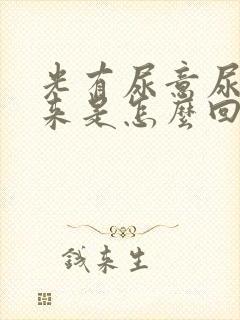 光有尿意尿
来是怎麼回
钱来生